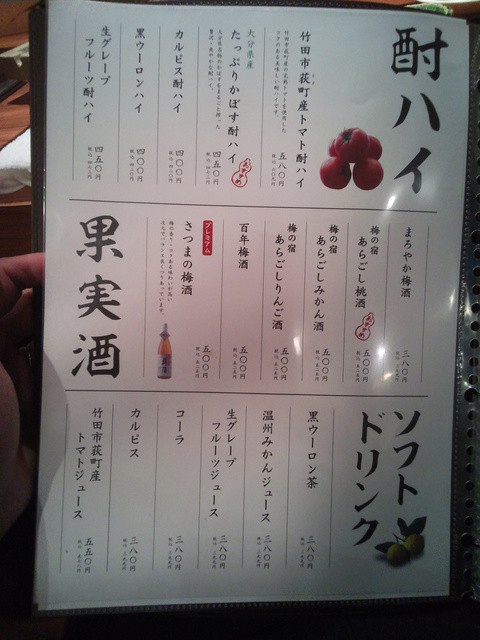 酎ハイ
竹田市荻町産トマト酎ハイ
竹田市荻町産の完熟トマトを使用した
コクのある美味しい酎ハイです。
五八〇円
大分県産
たっぷりかぼす酎ハイ
おすすめ
四五〇円
カルピス酎ハイ
四〇〇円
黒ウーロンハイ
四〇〇円
生グレープ
フルーツ酎ハイ
四五〇円
果実酒
まろやか梅酒
三八〇円
梅の宿
あらごし桃酒
おすすめ
五〇〇円
梅の宿
あらごしみかん酒
五〇〇円
梅の宿
あらごしりんご酒
五〇〇円
百年梅酒
五〇〇円
プレミアム
さつまの梅酒
五〇〇円
ソフト
ドリンク
黒ウーロン茶
三八〇円
温州みかんジュース
三八〇円
生グレープ
フルーツジュース
三八〇円
コーラ
三八〇円
カルピス
三八〇円
竹田市荻町産
トマトジュース
五五〇円